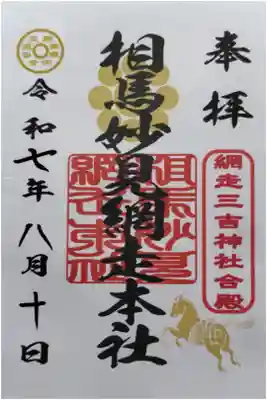 奉拝
網走三吉神社合殿
相馬妙見網走本社
令和七年八月十日